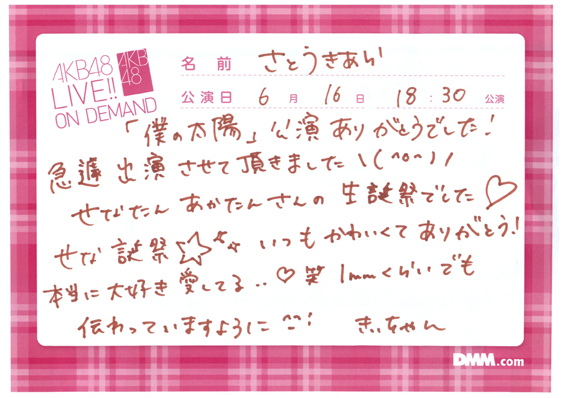 AKB48
LIVE!!
ON DEMAND
AKB
48
名前 さとうきあら
公演日 6月16日 18:30公演
「僕の太陽」公演ありがとうでした!
急遽出演させて頂きました\(^o^)/
せなたんあかたんさんの生誕祭でした♡
せな誕祭☆いつもかわいくてありがとう!
本当に大好き愛してる..♡笑 1mmくらいでも
伝わっていますように^^! きぃちゃん
DMM.com